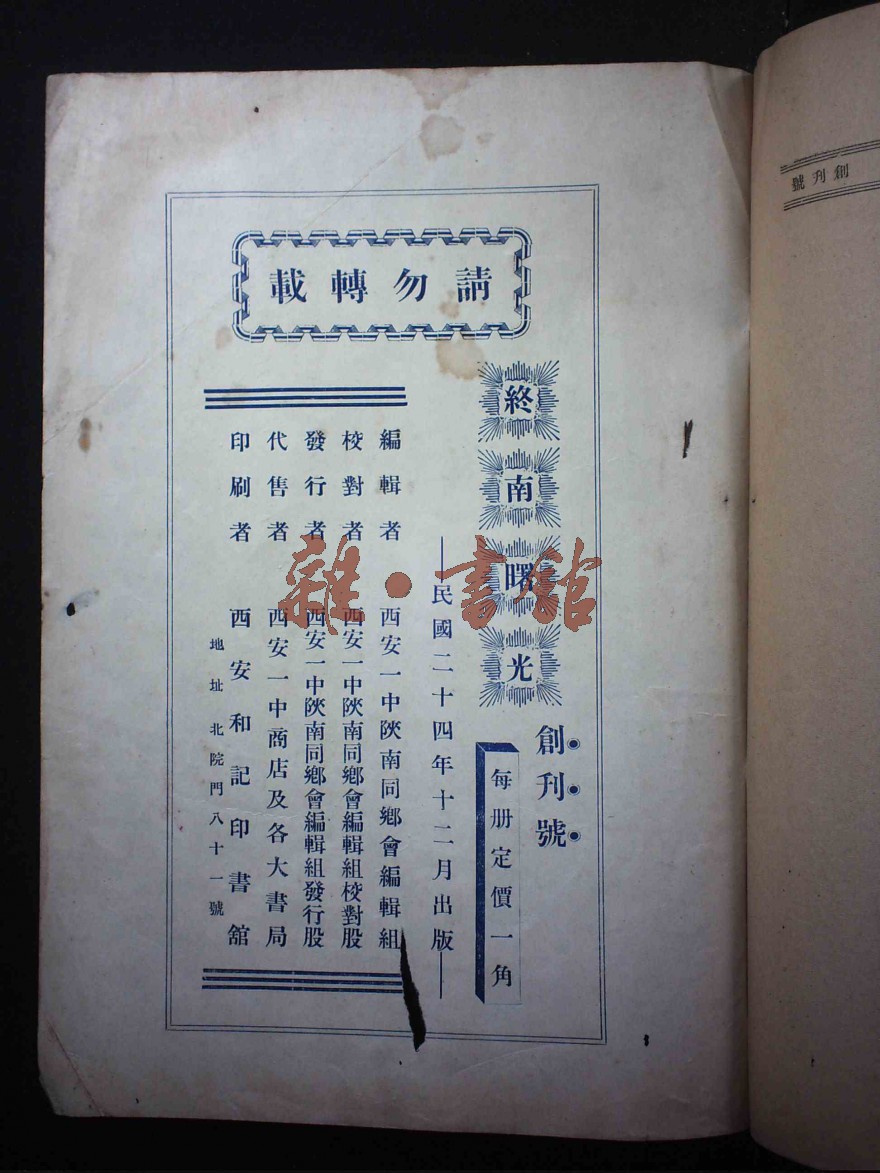 請勿轉載
終南曙光
創刊號
每册定價一角
民國二十四年十二月出版
編輯者 西安一中陝南同鄉會編輯組
校對者 西安一中陝南同鄉會編輯組校對股
發行者 西安一中陝南同鄉會編輯組發行股
代售者 西安一中商店及各大書局
印刷者 西安和記印書舘
地址北院門八十一號
雜·書舘
創刊號